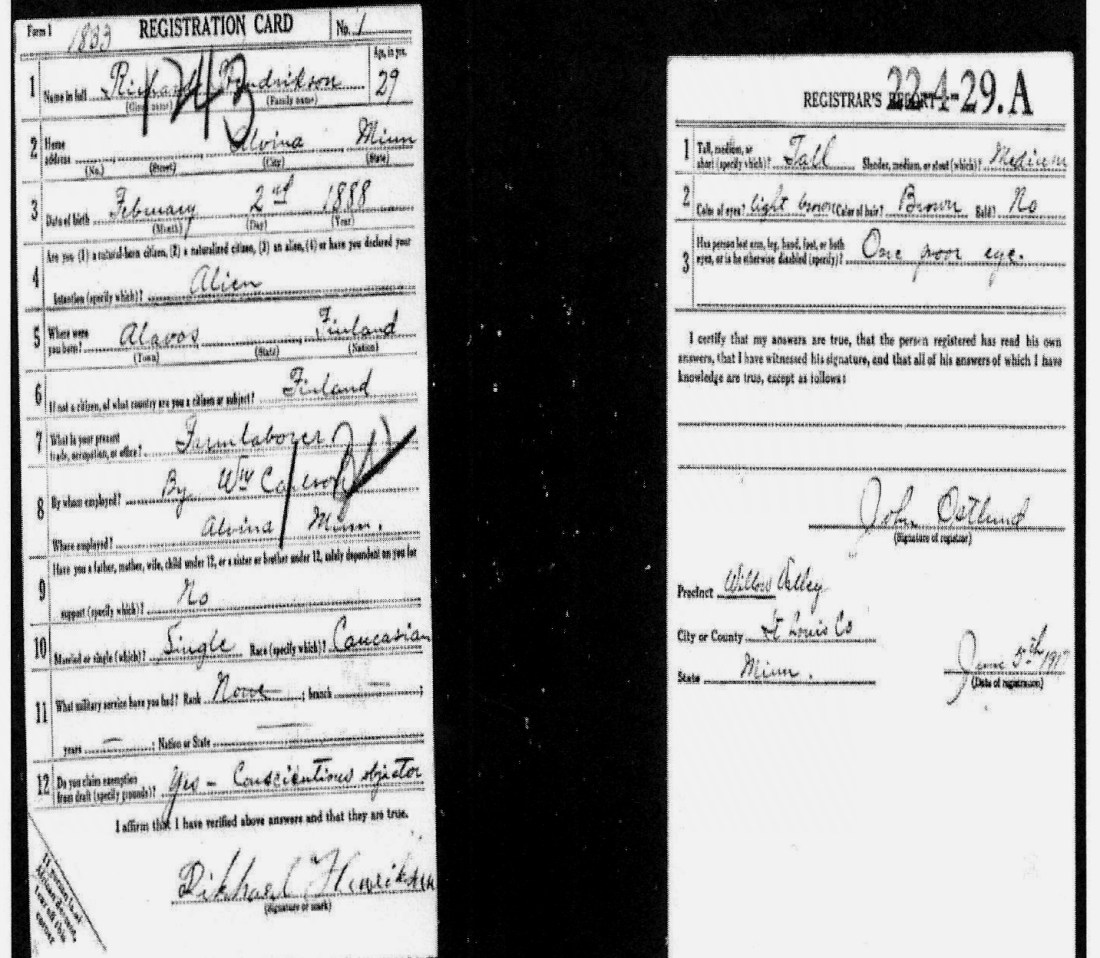 Form 1 1833 REGISTRATION CARD No. 1
Age, in yrs.
1 Name in full Richard Hendrikson 29
(Given name) (Family name)
1243
2 Home address Alvina Minn
(No.) (Street) (City) (State)
3 Date of birth February 2nd 1888
(Month) (Day) (Year)
Are you (1) a natural-born citizen, (2) a naturalized citizen, (3) an alien, (4) or have you declared your
4 intention (specify which)? Alien
5 Where were you born? Alavos Finland
(Town) (State) (Nation)
6 If not a citizen, of what country are you a citizen or subject? Finland
7 What is your present trade, occupation, or office? Farmlaborer
8 By whom employed? By Wm Carlson
Where employed? Alvina Minn.
Have you a father, mother, wife, child under 12, or a sister or brother under 12, solely dependent on you for
9 support (specify which)? No
10 Married or single (which)? Single Race (specify which)? Caucasian
11 What military service have you had? Rank None ; branch ;
years ; Nation or State
12 Do you claim exemption from draft (specify grounds)? Yes - Conscientious objector
I affirm that I have verified above answers and that they are true.
Rikhard Henrikson
(Signature or mark)
If person is of
African descent,
tear off this
corner
22-4-29.A
REGISTRAR'S REPORT
1 Tall, medium, or short (specify which)? Tall Slender, medium, or stout (which)? Medium
2 Color of eyes? light brown Color of hair? Brown Bald? No
3 Has person lost arm, leg, hand, foot, or both eyes, or is he otherwise disabled (specify)? One poor eye.
I certify that my answers are true, that the person registered has read his own
answers, that I have witnessed his signature, and that all of his answers of which I have
knowledge are true, except as follows:
John Ostlund
(Signature of registrar)
Precinct Willow Valley
City or County St Louis Co
State Minn.
June 5th 1917
(Date of registration)